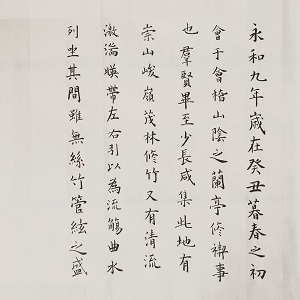 永和九年歲在癸丑暮春之初
會于會稽山陰之蘭亭脩禊事
也羣賢畢至少長咸集此地有
崇山峻嶺茂林脩竹又有清流
激湍暎帶左右引以為流觴曲水
列坐其間雖無絲竹管絃之盛